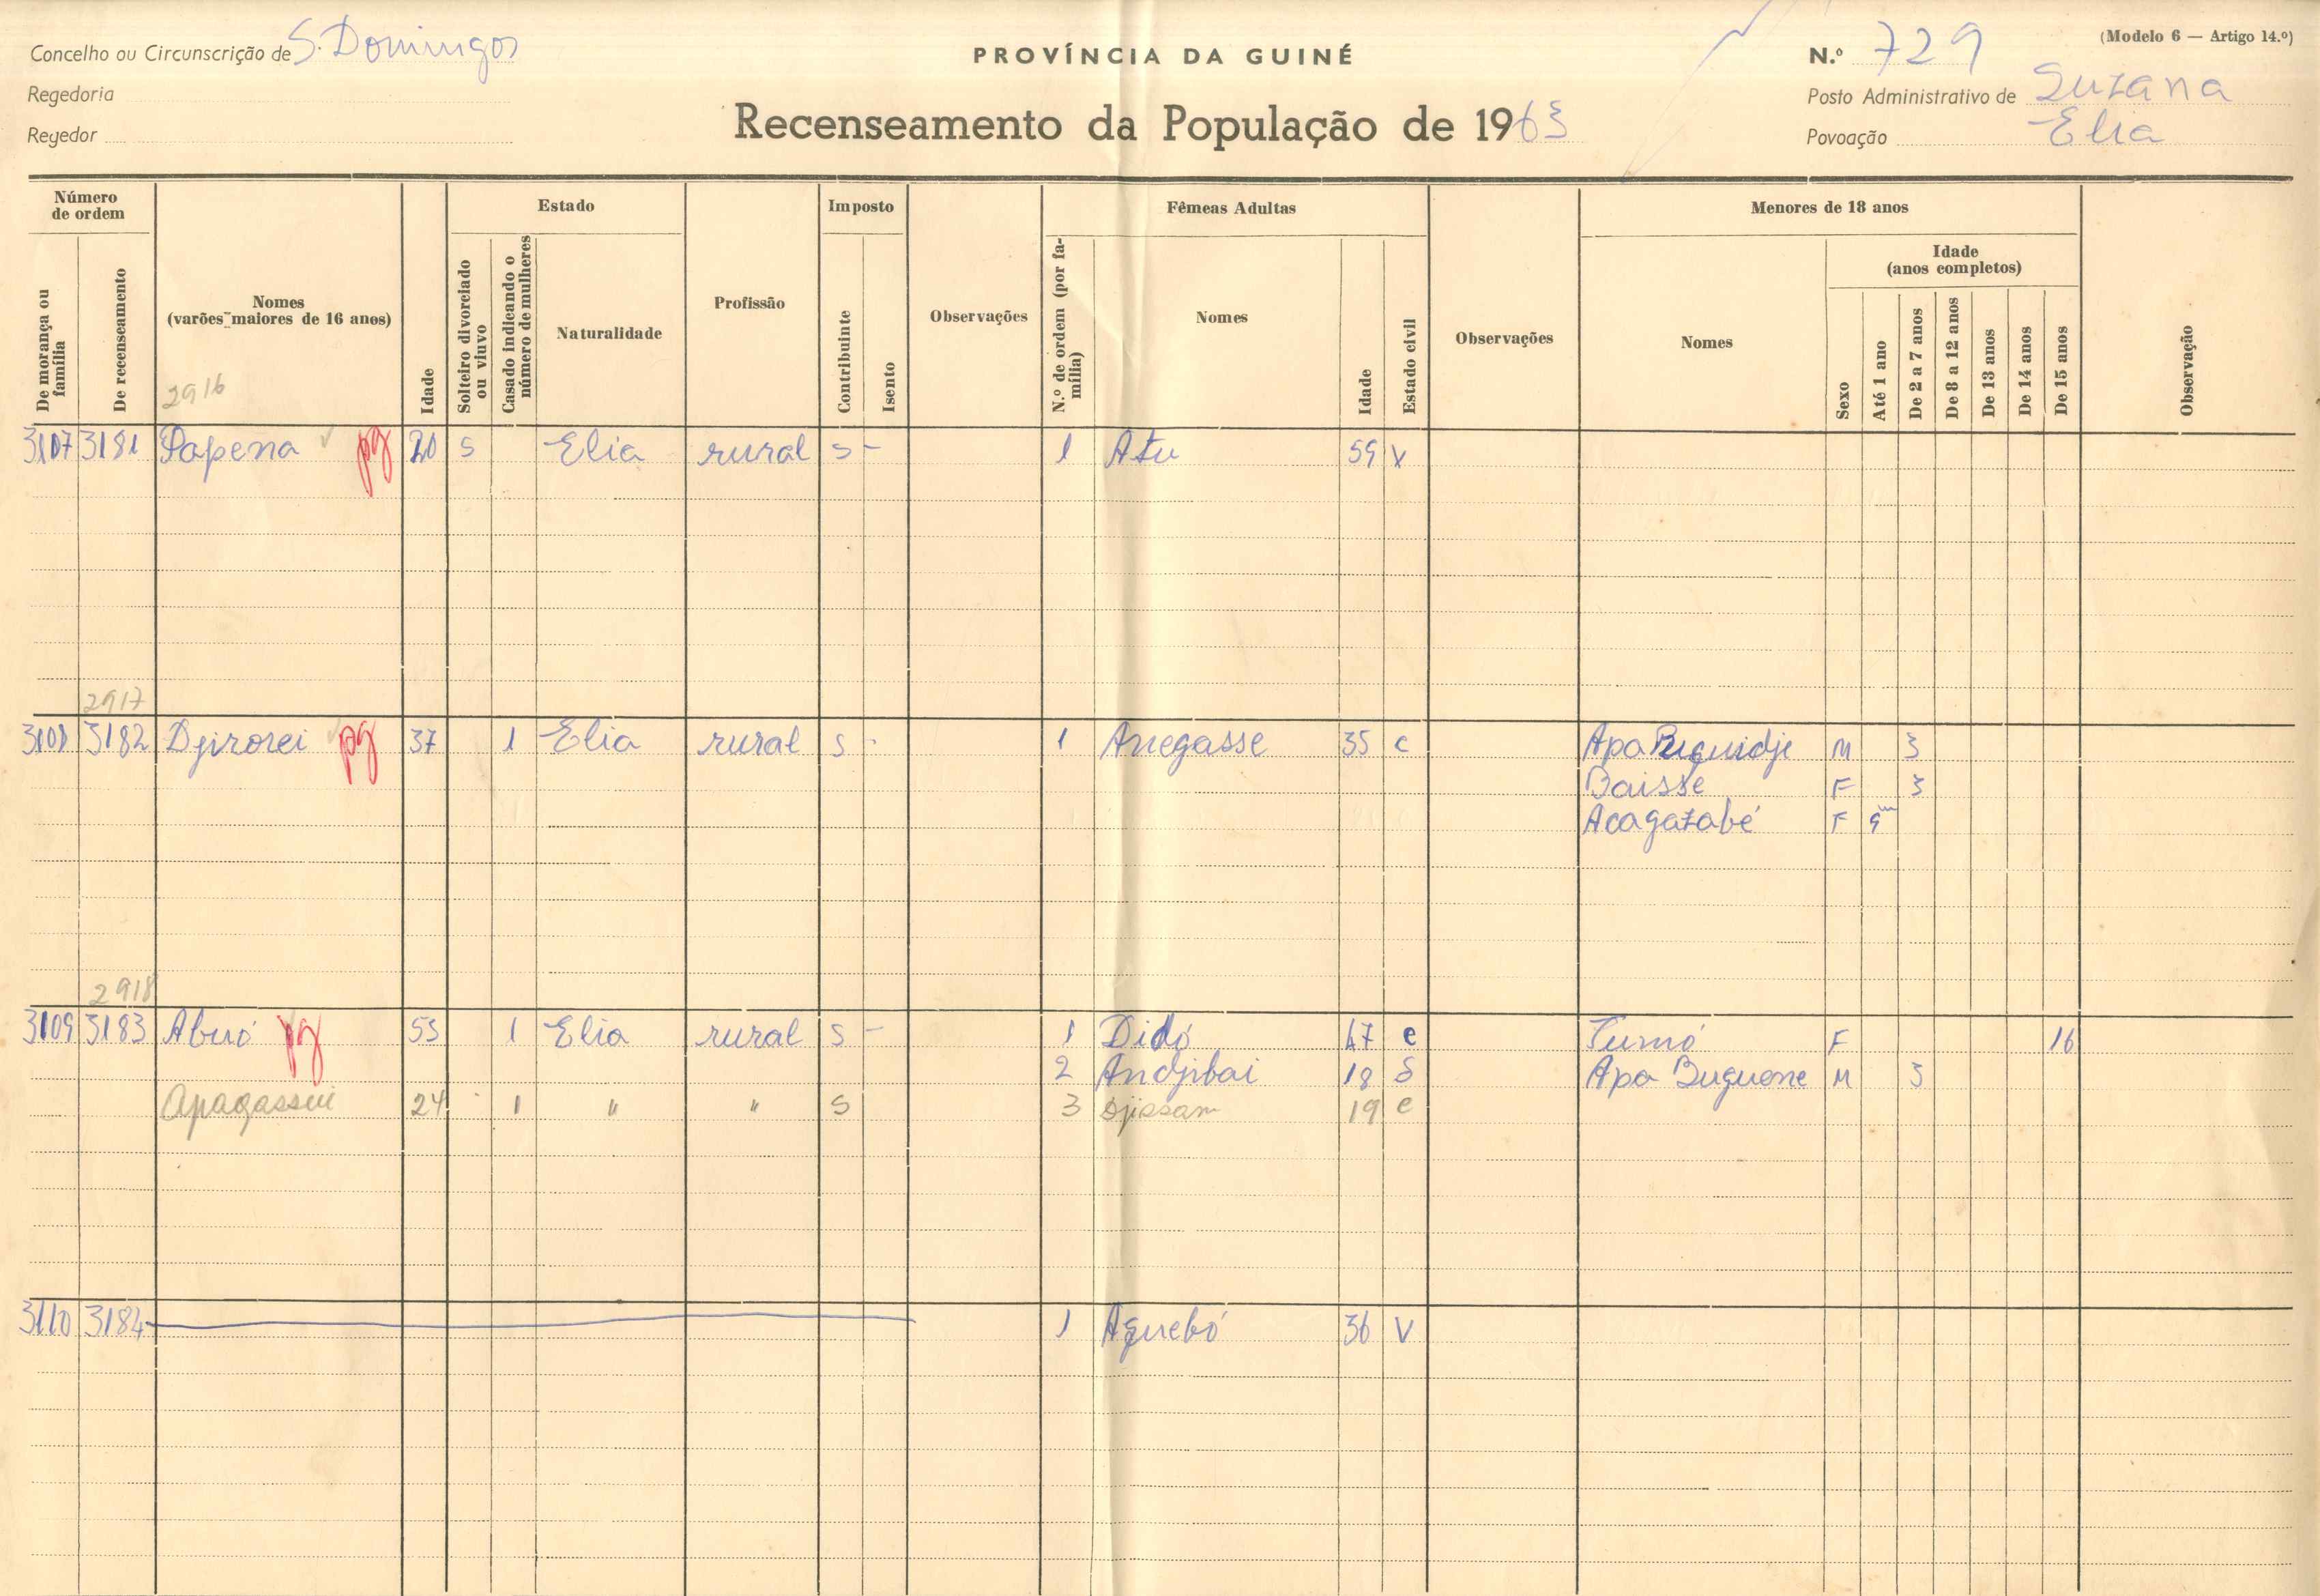 Concelho ou Circunscrição de S. Domingos
Regedoria
Regedor
PROVÍNCIA DA GUINÉ
Recenseamento da População de 1963
(Modelo 6 — Artigo 14.º)
N.º 729
Posto Administrativo de Suzana
Povoação Elia
Número de ordem
De morança ou família
De recenseamento
Nomes (varões maiores de 16 anos)
2916
Idade
Estado
Solteiro divorciado ou viuvo
Casado indicando o número de mulheres
Naturalidade
Profissão
Imposto
Contribuinte
Isento
Observações
Fêmeas Adultas
N.º de ordem (por família)
Nomes
Idade
Estado civil
Observações
Menores de 18 anos
Nomes
Sexo
Idade (anos completos)
Até 1 ano
De 2 a 7 anos
De 8 a 12 anos
De 13 anos
De 14 anos
De 15 anos
Observação
3107 3181 Papena pg 20 S Elia rural S - 1 Atu 59 V
2917
3108 3182 Djirorei pg 37 1 Elia rural S - 1 Anegasse 35 C Apa Buguidje M 3
Baisse F 3
Acagazabé F 9m
2918
3109 3183 Abuó pg 53 1 Elia rural S - 1 Didó 47 C Tumó F 16
2 Andjibai 18 S Apa Buguene M 3
Apagassui 24 1 " " S 3 Djissam 19 C
3110 3184 1 Aquebó 36 V